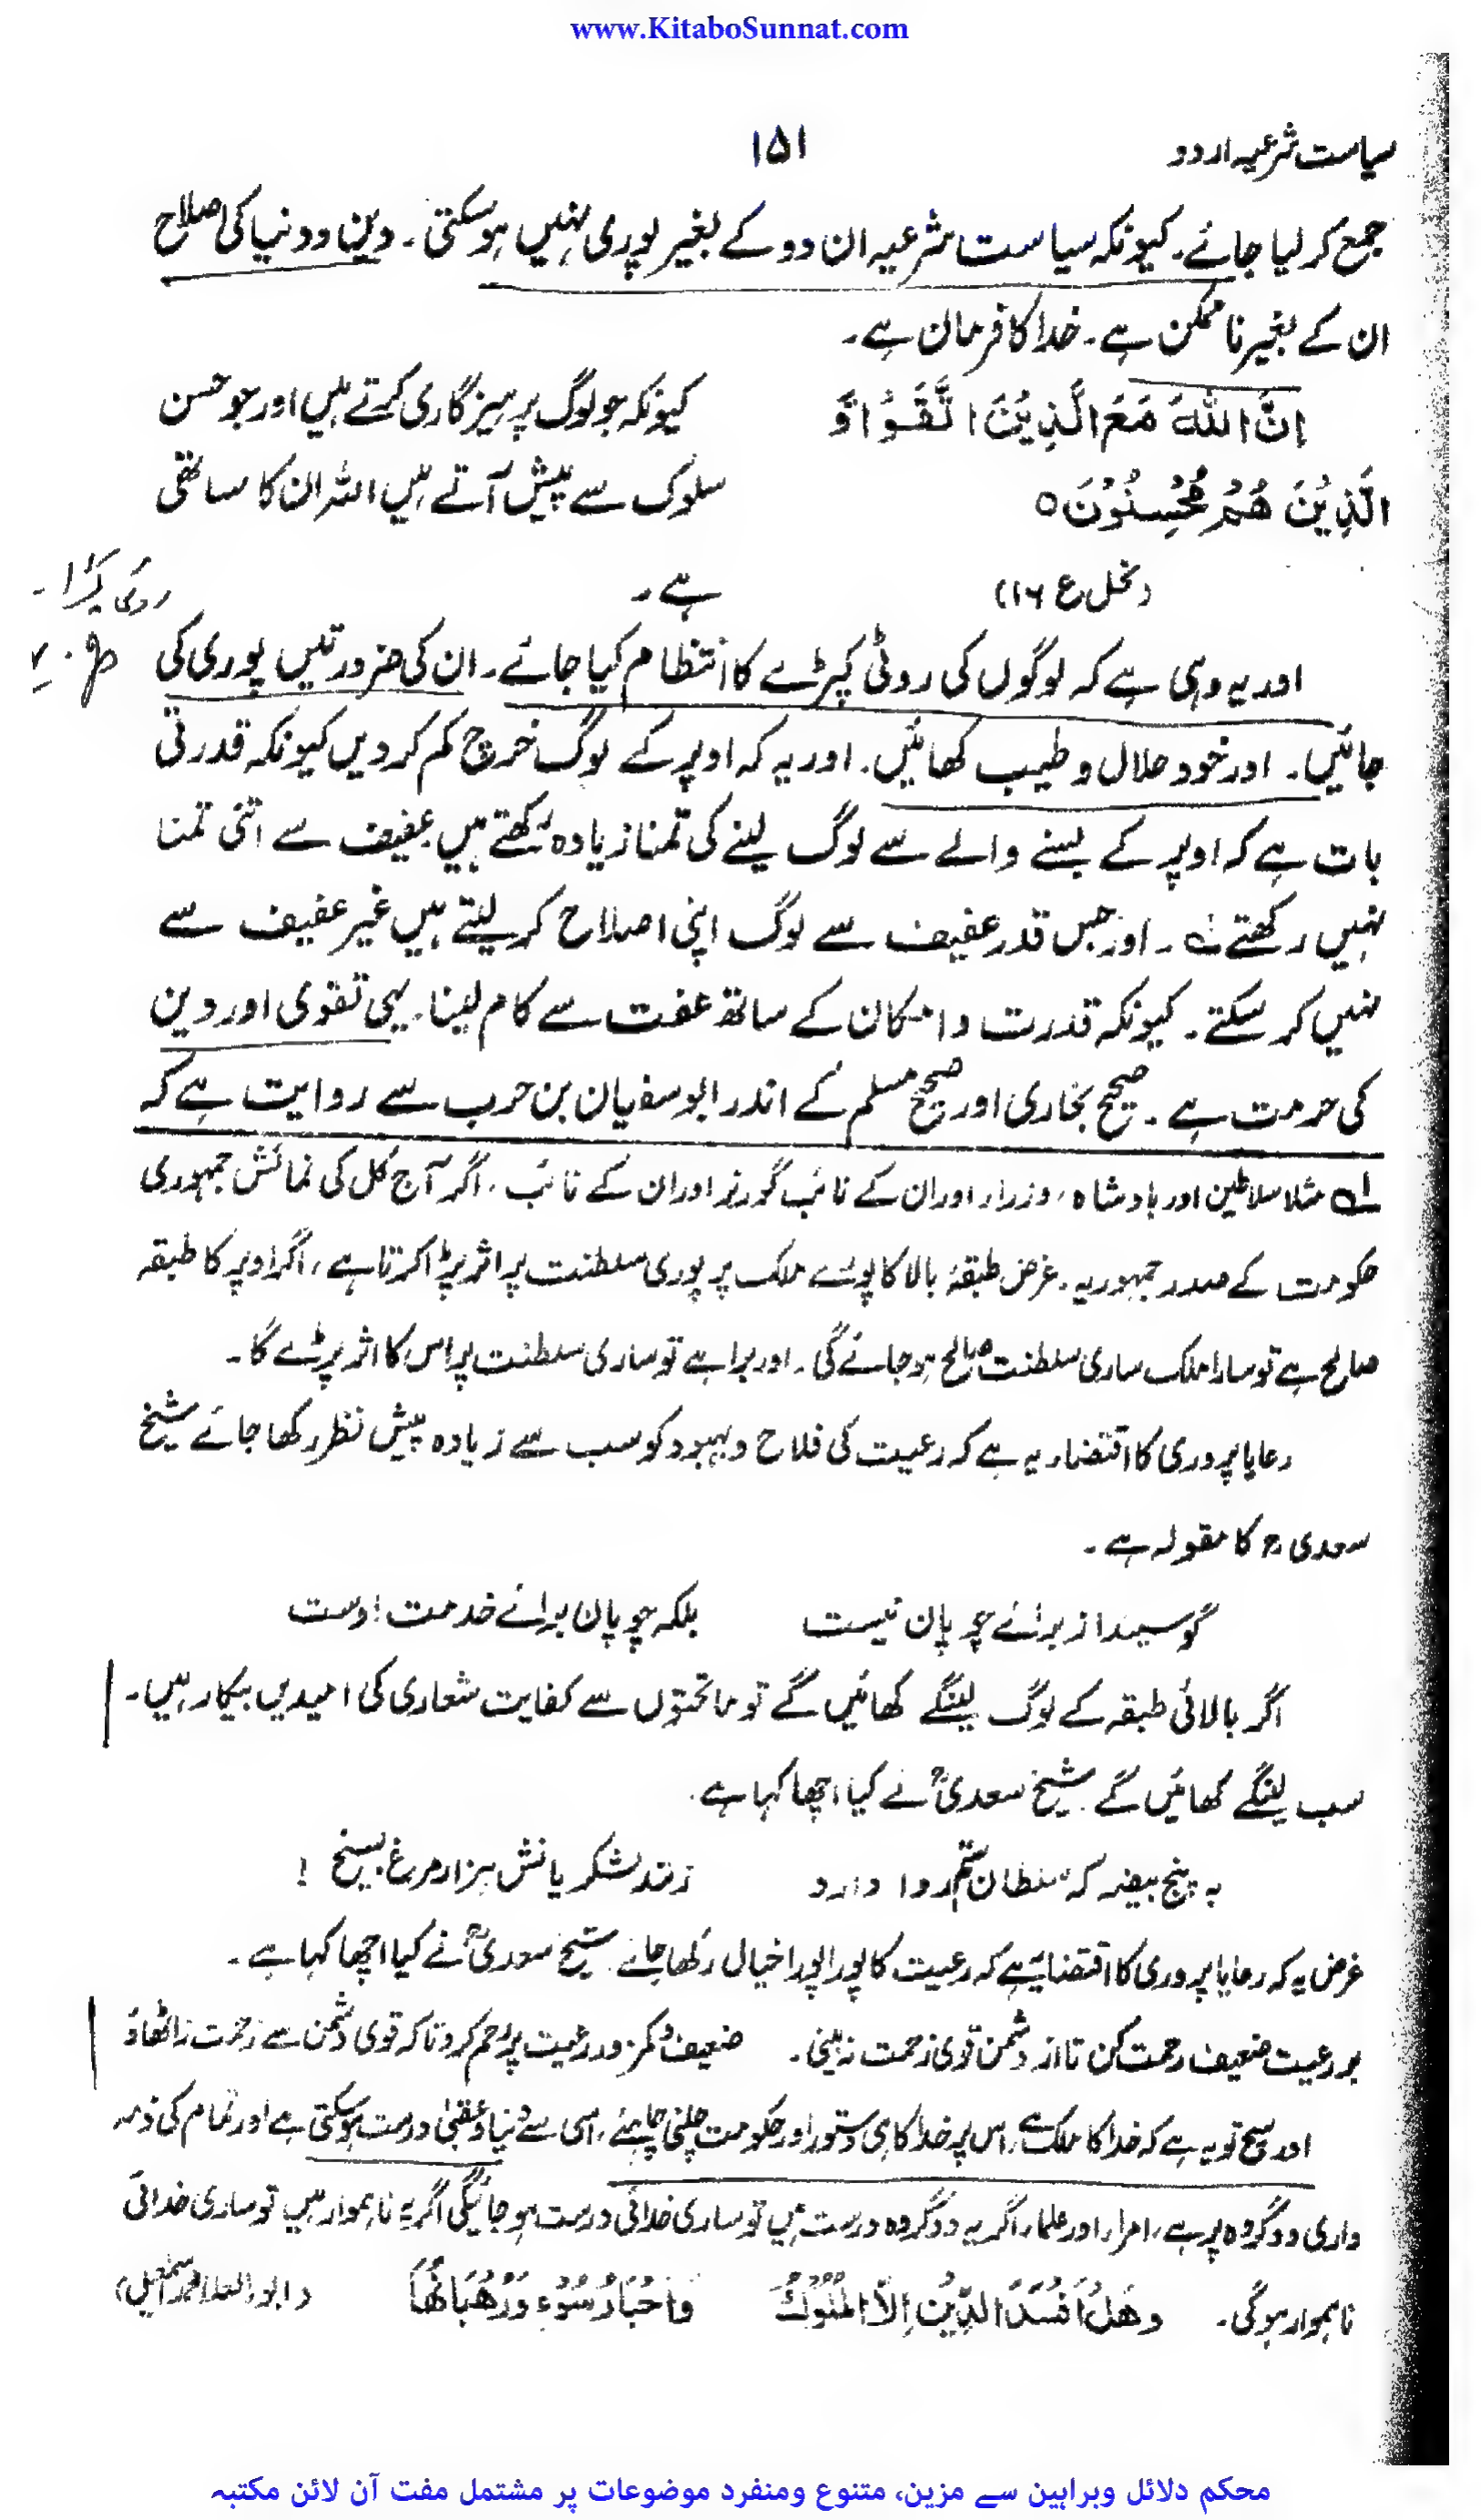 www.KitaboSunnat.com
سیاست شرعیہ اردو
۱۵۱
جمع کر لیا جائے۔ کیونکہ سیاست شرعیہ ان دو کے بغیر پوری نہیں ہو سکتی۔ دین و دنیا کی صلاح
ان کے بغیر ناممکن ہے۔ خدا کا فرمان ہے۔
اِنَّ اللّٰهَ مَعَ الَّذِيْنَ اتَّقَوْا وَّ
کیونکہ جو لوگ پرہیزگاری کرتے ہیں اور جو حسن
الَّذِيْنَ هُمْ مُّحْسِنُوْنَ ○
سلوک سے پیش آتے ہیں اللہ ان کا ساتھی
(نحل ع ۱۶)
ہے۔
روٹی کپڑا۔
اور یہ وہی ہے کہ لوگوں کی روٹی کپڑے کا انتظام کیا جائے۔ ان کی ضرورتیں پوری کی
جائیں۔ اور خود حلال و طیب کھائیں۔ اور یہ کہ اوپر کے لوگ خرچ کم کر دیں کیونکہ قدرتی
بات ہے کہ اوپر کے بسنے والے سے لوگ لینے کی تمنا زیادہ رکھتے ہیں عفیف سے اتنی تمنا
نہیں رکھتے لہ۔ اور جس قدر عفیف سے لوگ اپنی اصلاح کر لیتے ہیں غیر عفیف سے
نہیں کر سکتے۔ کیونکہ قدرت و امکان کے ساتھ عفت سے کام لینا۔ یہی تقوی اور دین
کی حرمت ہے۔ صحیح بخاری اور صحیح مسلم کے اندر ابو سفیان بن حرب سے روایت ہے کہ
لہ مثلا سلاطین اور بادشاہ، وزراء اور ان کے نائب گورنر اور ان کے نائب، اگر آج کل کی نمائش جمہوری
حکومت کے صدر جمہوریہ۔ غرض طبقۂ بالا کا پورے ملک پر پوری سلطنت پر اثر پڑا کرتا ہے، اگر اوپر کا طبقہ
صالح ہے تو سارا ملک ساری سلطنت صالح ہو جائے گی۔ اور برا ہے تو ساری سلطنت پر اس کا اثر پڑے گا۔
رعایا پروری کا اقتضاء یہ ہے کہ رعیت کی فلاح و بہبود کو سب سے زیادہ پیش نظر رکھا جائے شیخ
سعدی رح کا مقولہ ہے۔
گوسپند از برائے چوپان نیست
بلکہ چوپان برائے خدمت اوست
اگر بالائی طبقہ کے لوگ لینگے کھائیں گے تو ماتحتوں سے کفایت شعاری کی امیدیں بیکار ہیں۔
سب لینگے کھائیں گے شیخ سعدیؒ نے کیا اچھا کہا ہے۔
بہ پنج بیضہ کہ سلطان ستم روا دارد
زنند لشکریانش ہزار مرغ بسیخ !
غرض یہ کہ رعایا پروری کا اقتضا یہ ہے کہ رعیت کا پورا پورا خیال رکھا جائے شیخ سعدیؒ نے کیا اچھا کہا ہے۔
بر رعیت ضعیف رحمت کن تا از دشمن قوی زحمت نہ بینی۔
ضعیف و کمزور رعیت پر رحم کرو تاکہ قوی دشمن سے زحمت نہ اٹھاؤ
اور سچ تو یہ ہے کہ خدا کا ملک ہے، اس پر خدا کا ہی دستور اور حکومت چلنی چاہئے، اسی سے دنیا و عقبیٰ درست ہو سکتی ہے اور تمام کی ذمہ
داری دو گروہ پر ہے، امراء اور علماء، اگر یہ دو گروہ درست ہیں تو ساری خدائی درست ہو جائیگی اگر یہ ناہموار ہیں تو ساری خدائی
ناہموار ہو گی۔
وَهَلْ اَفْسَدَ الدِّيْنَ اِلَّا الْمُلُوْكُ
وَاَحْبَارُ سُوْءٍ وَرُهْبَانُهَا
(ابو العلاء محمد اسمٰعیل)
محکم دلائل وبراہین سے مزین، متنوع ومنفرد موضوعات پر مشتمل مفت آن لائن مکتبہ